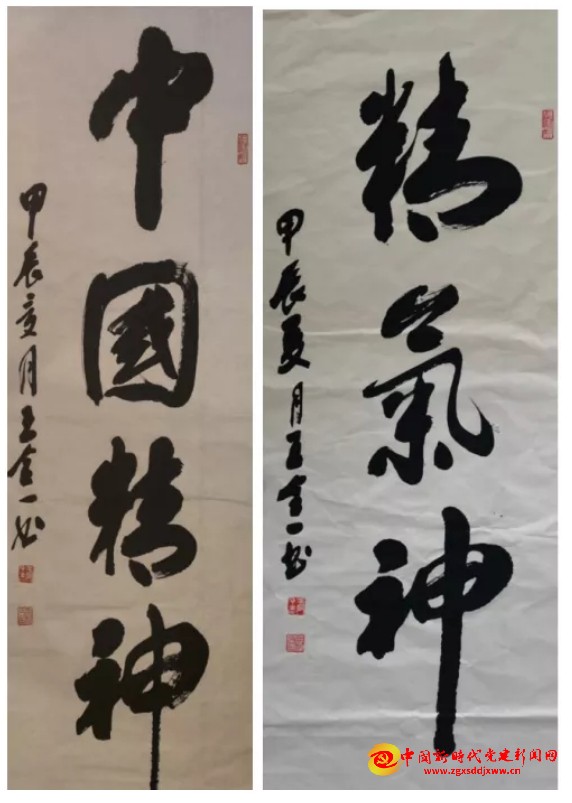 中國精神
甲辰夏月王金一书
精氣神
甲辰夏月王金一书
中国新时代党建新闻网
www.zgxsddjxww.cn